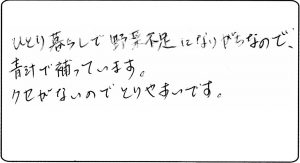 ひとり暮らしで野菜不足になりがちなので、
青汁で補っています。
クセがないのでとりやすいです。